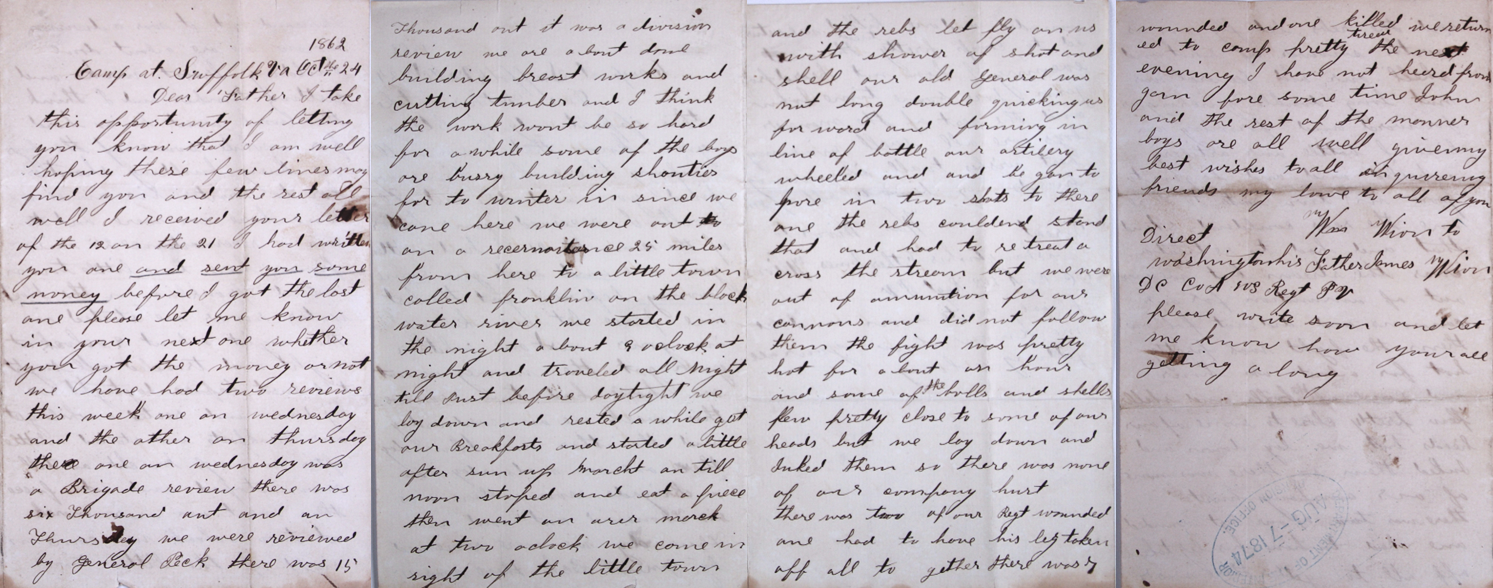 1862
Camp at Suffolk Va Oct 24
Dear Father I take
this opportunity of letting
you know that I am well
hoping these few lines may
find you and the rest all
well I received your letter
of the 12 on the 21 I had written
you one and sent you some
money before I got the last
one please let me know
in your next one whether
you got the money or not
we have had two reviews
this week one on wednesday
and the other on thursday
there one on wednesday was
a Brigade review there was
six Thousand out and on
Thursday we were reviewed
by general Peck there was 15
Thousand out it was a division
review we are about done
building breast works and
cutting timber and I think
the work wont be so hard
for awhile some of the boys
are bussy building shonties
for to winter in since we
cane here we were out to
on a recernoitance 25 miles
from here to a little town
called franklin on the black
water river we started in
the night a bout 9 oclock at
night and traveled all night
till Just before daytight we
lay down and rested a while got
our Breakfasts and started a little
after sun up marcht on till
noon stoped and eat a piece
then went on over march
at two oclock we come in
sight of the little town
and the rebs let fly on us
with shower of shot and
shell our old general was
not long double quicking us
for word and forming in
line of battle our artilery
wheeled and and be gan to
pore in two shots to there
one the rebs couldend stand
that and had to retreat a
cross the stream but we were
out of amunition for our
cannons and did not follow
them the fight was pretty
hot for a bout an hour
and some of the balls and shells
flew pretty close to some of our
heads but we lay down and
Duked them so there was none
of our company hurt
there was two of our Regt wounded
one had to have his leg taken
off all to gether there was 7
wounded and one killed we return
ed to camp pretty tireed the next
evening I have not heerd from
gorn fore some time John
and the rest of the manner
boys are all well give my
best wishes to all inquireing
friends my love to all of you
Wm Wion to
Direct
washington his Father James Wion
DC Co A 103 Regt PV
please write soon and let
me know how your all
getting a long
AUG -7 1874